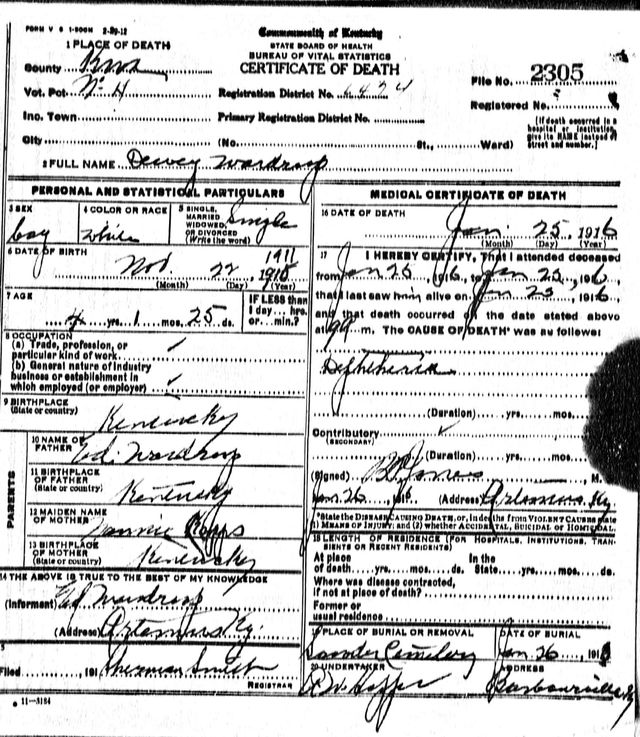 FORM V S 1-500M 2-29-12
Commonwealth of Kentucky
STATE BOARD OF HEALTH
BUREAU OF VITAL STATISTICS
CERTIFICATE OF DEATH
1 PLACE OF DEATH
County
Vot. Pct No 4
Ino. Town
City
Registration District No. 6424
Primary Registration District No.
(No. St., Ward)
File No. 2305
Registered No.
(If death occurred in a
hospital or institution,
give its NAME instead of
street and number.)
2 FULL NAME Dewey Wardrop
PERSONAL AND STATISTICAL PARTICULARS
3 SEX
boy
4 COLOR OR RACE
white
5 SINGLE,
MARRIED
WIDOWED,
OR DIVORCED
(Write the word)
Single
6 DATE OF BIRTH
Nov 22, 1911
(Month) (Day) (Year)
7 AGE
4 yrs. 1 mos. 25 ds.
IF LESS than
1 day....hrs.
or....min.?
8 OCCUPATION
(a) Trade, profession, or
particular kind of work
(b) General nature of industry
business or establishment in
which employed (or employer)
9 BIRTHPLACE
(State or country)
Kentucky
PARENTS
10 NAME OF
FATHER
Ed. Wardrop
11 BIRTHPLACE
OF FATHER
(State or country)
Kentucky
12 MAIDEN NAME
OF MOTHER
13 BIRTHPLACE
OF MOTHER
(State or country)
Kentucky
14 THE ABOVE IS TRUE TO THE BEST OF MY KNOWLEDGE
(Informent) Ed Wardrop
(Address) Artemus Ky.
Filed , 191 Sherman Smith
REGISTRAR
11-3184
MEDICAL CERTIFICATE OF DEATH
16 DATE OF DEATH
Jan. 25, 1916
(Month) (Day) (Year)
17 I HEREBY CERTIFY, That I attended deceased
from Jan 25, 1916, to Jan 25, 1916,
that I last saw him alive on Jan 25, 1916
and that death occurred on the date stated above
at m. The CAUSE OF DEATH* was as follows:
Diphtheria
(Duration) yrs. mos.
Contributory
(SECONDARY)
(Duration) yrs. mos.
(Signed) B Jones, M.
Jan 26, 191 (Address) Artemus, Ky
*State the DISEASE CAUSING DEATH, or, in deaths from VIOLENT CAUSES state
1) MEANS OF INJURY; and (2) whether ACCIDENTAL, SUICIDAL OR HOMICIDAL.
18 LENGTH OF RESIDENCE (FOR HOSPITALS, INSTITUTIONS, TRAN-
SIENTS OR RECENT RESIDENTS)
At place
of death yrs. mos. ds.
In the
State yrs. mos. ds.
Where was disease contracted,
if not at place of death?
Former or
usual residence
19 PLACE OF BURIAL OR REMOVAL
Cemetery
DATE OF BURIAL
Jan. 26, 191
20 UNDERTAKER
ADDRESS
Barbourville Ky